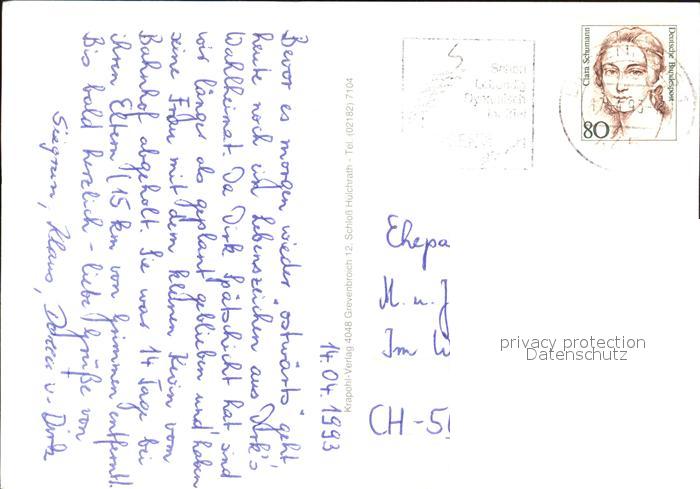 14.04.1993
Bevor es morgen wieder "ostwärts" geht
heute noch ein Lebenszeichen aus Dirk's
Wahlheimat. Da Dirk Spätschicht hat sind
wir länger als geplant geblieben und haben
seine Frau mit dem kleinen Kevin vom
Bahnhof abgeholt. Sie war 14 Tage bei
ihren Eltern (15 km von Grimmen entfernt).
Bis bald herzlich - liebe Grüße von
Siegrun, Klaus, u. Dirk
Krapohl-Verlag 4048 Grevenbroich 12, Schloß Hülchrath - Tel. (02182) 7104
Clara Schumann
Deutsche Bundespost
80
Ehepa
M. u. J
Im W
CH-5
privacy protection
Datenschutz